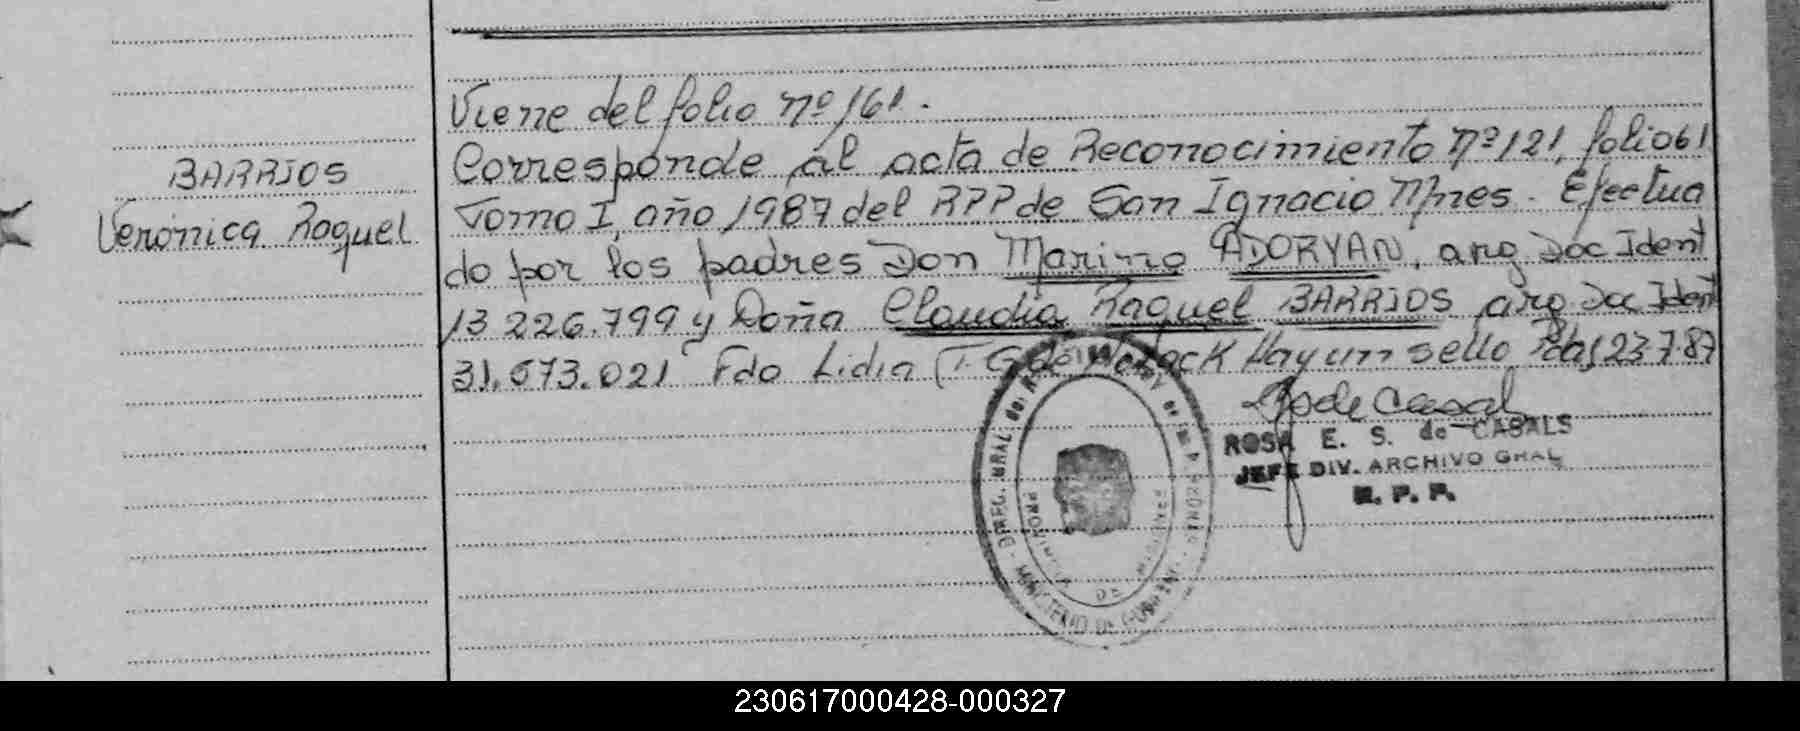 Viene del folio nº 161.
BARRIOS
Verónica Raquel
Corresponde al acta de Reconocimiento nº 121, folio 61
Tomo I, año 1987 del RPP de San Ignacio Mnes. Efectua
do por los padres Don Marino ADORYAN, arg Doc Ident
13.226.799 y Doña Claudia Raquel BARRIOS arg Doc Ident
31.573.021 Fdo Lidia T. G de Hay un sello Pdas 23.7.87
ROSA E. S. de CASALS
JEFE DIV. ARCHIVO GRAL
R. P. P.
DIREC. GRAL de
MINISTERIO DE
PROVINCIA DE MISIONES
230617000428-000327